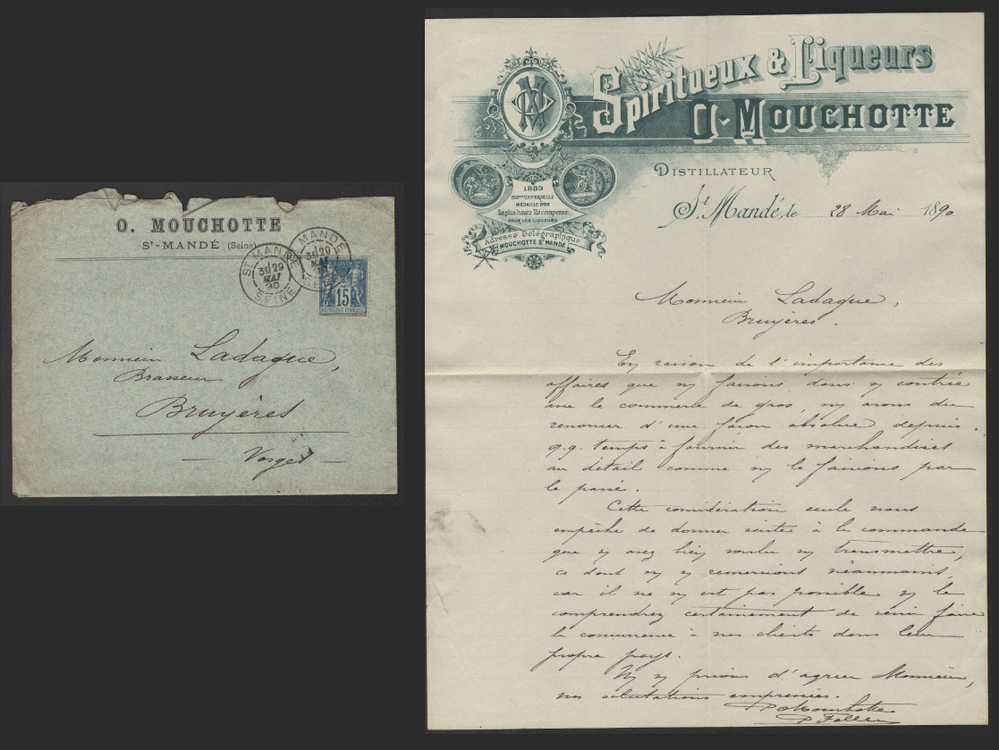 O. MOUCHOTTE
St-MANDÉ (Seine)
ST MANDÉ
3E/29
MAI
90
SEINE
MANDÉ
3E/29
MAI
15
Monsieur Ladague,
Brasseur
Bruyères
Vosges
Spiritueux & Liqueurs
O. MOUCHOTTE
DISTILLATEUR
1889
MÉDAILLE D'OR
La plus haute Récompense
POUR LES LIQUEURS
Adresse Télégraphique
MOUCHOTTE St MANDÉ
St Mandé, le 28 Mai 1890
Monsieur Ladague,
Bruyères.
En raison de l'importance des
affaires que ns faisons dans vs contrée
avec le commerce de gros, ns avons du
renoncer d'une façon absolue depuis
q.q. temps à fournir des marchandises
au détail comme ns le faisions par
le passé.
Cette considération seule nous
empêche de donner suite à la commande
que vs avez bien voulu ns transmettre,
ce dont ns vs remercions néanmoins,
car il ne ns est pas possible vs le
comprendrez certainement de venir faire
la concurrence à nos clients dans leur
propre pays.
Ns vs prions d'agréer Monsieur,
nos salutations empressées.
P. O. Mouchotte